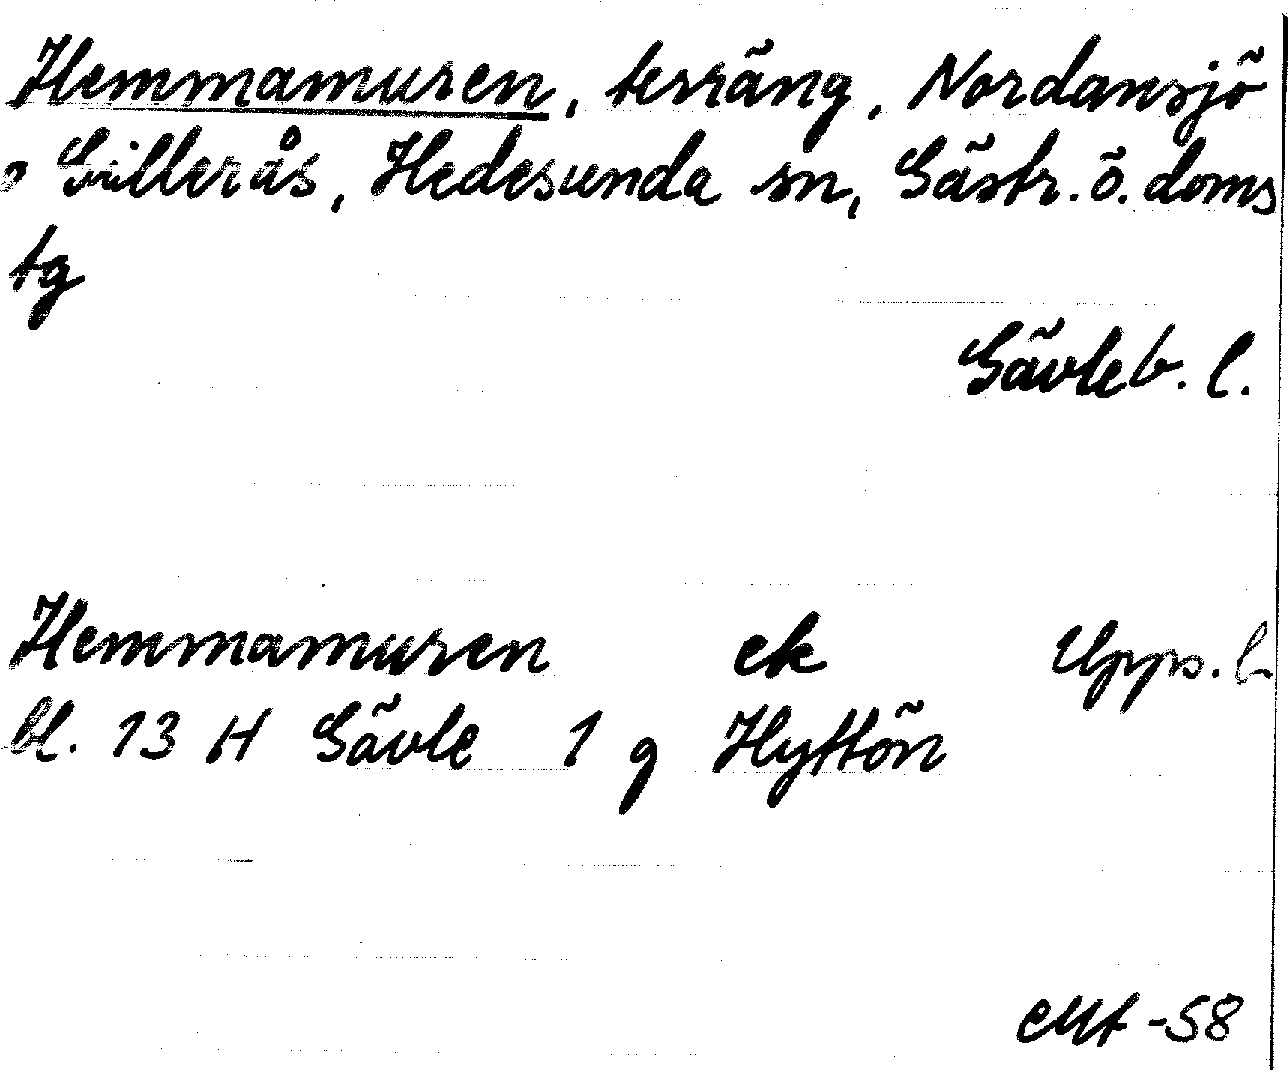 Hemmamuren, terräng, Nordansjö
o Gillerås, Hedesunda sn, Gästr. ö. doms
tg
Gävleb. l.
Hemmamuren ek Upps. l.
bl. 13 H Gävle 1 g Hyttön
-58